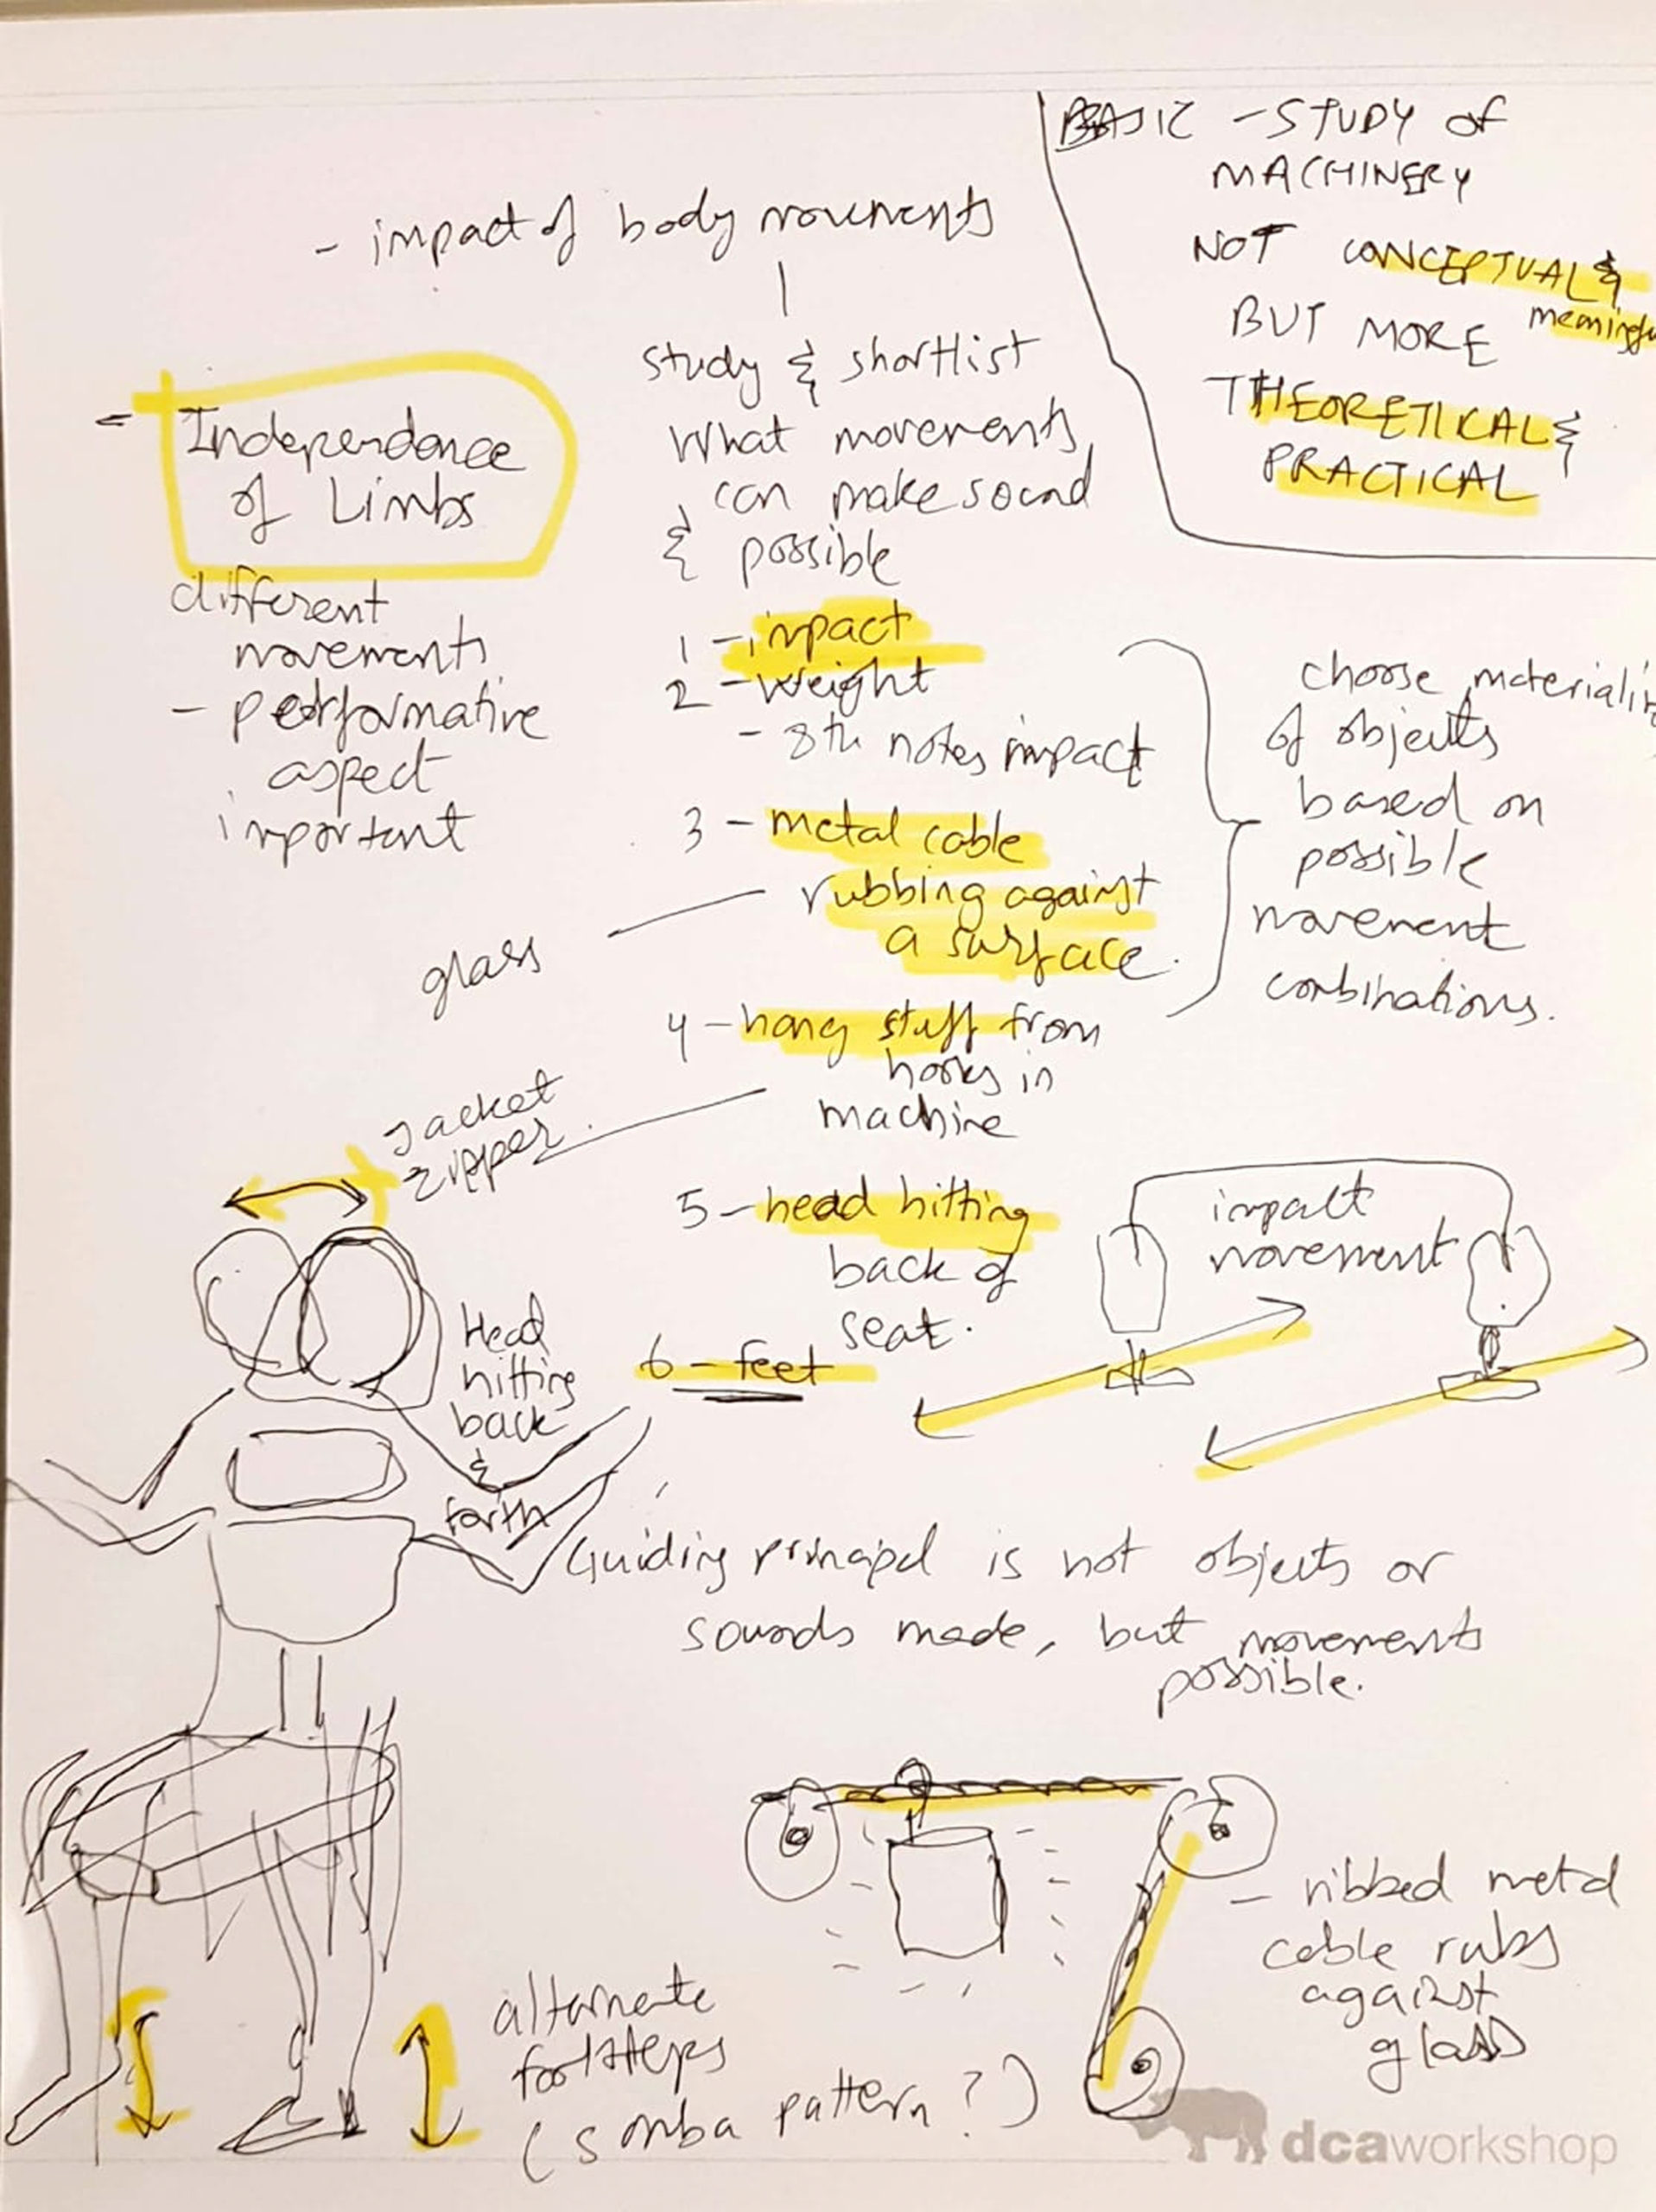 BASIC - STUDY of
MACHINERY
NOT CONCEPTUAL &
meaningfu
BUT MORE
THEORETICAL &
PRACTICAL
- impact of body movements
study & shortlist
What movements
can make sound
& possible
- Independance
of Limbs
different
movements
- performative
aspect
important
1 - impact
2 - weight
- 8th notes impact
3 - metal cable
rubbing against
a surface.
glass
4 - hang stuff from
hooks in
machine
Jacket
zipper.
5 - head hitting
back of
seat.
6 - feet
choose materialit
of objects
based on
possible
movement
combinations.
impact
movement
Head
hitting
back
&
forth
Guiding principal is not objects or
sounds made, but movements
possible.
- ribbed metal
cable rubs
against
glass
alternate
footsteps
(Somba pattern?)
dcaworkshop